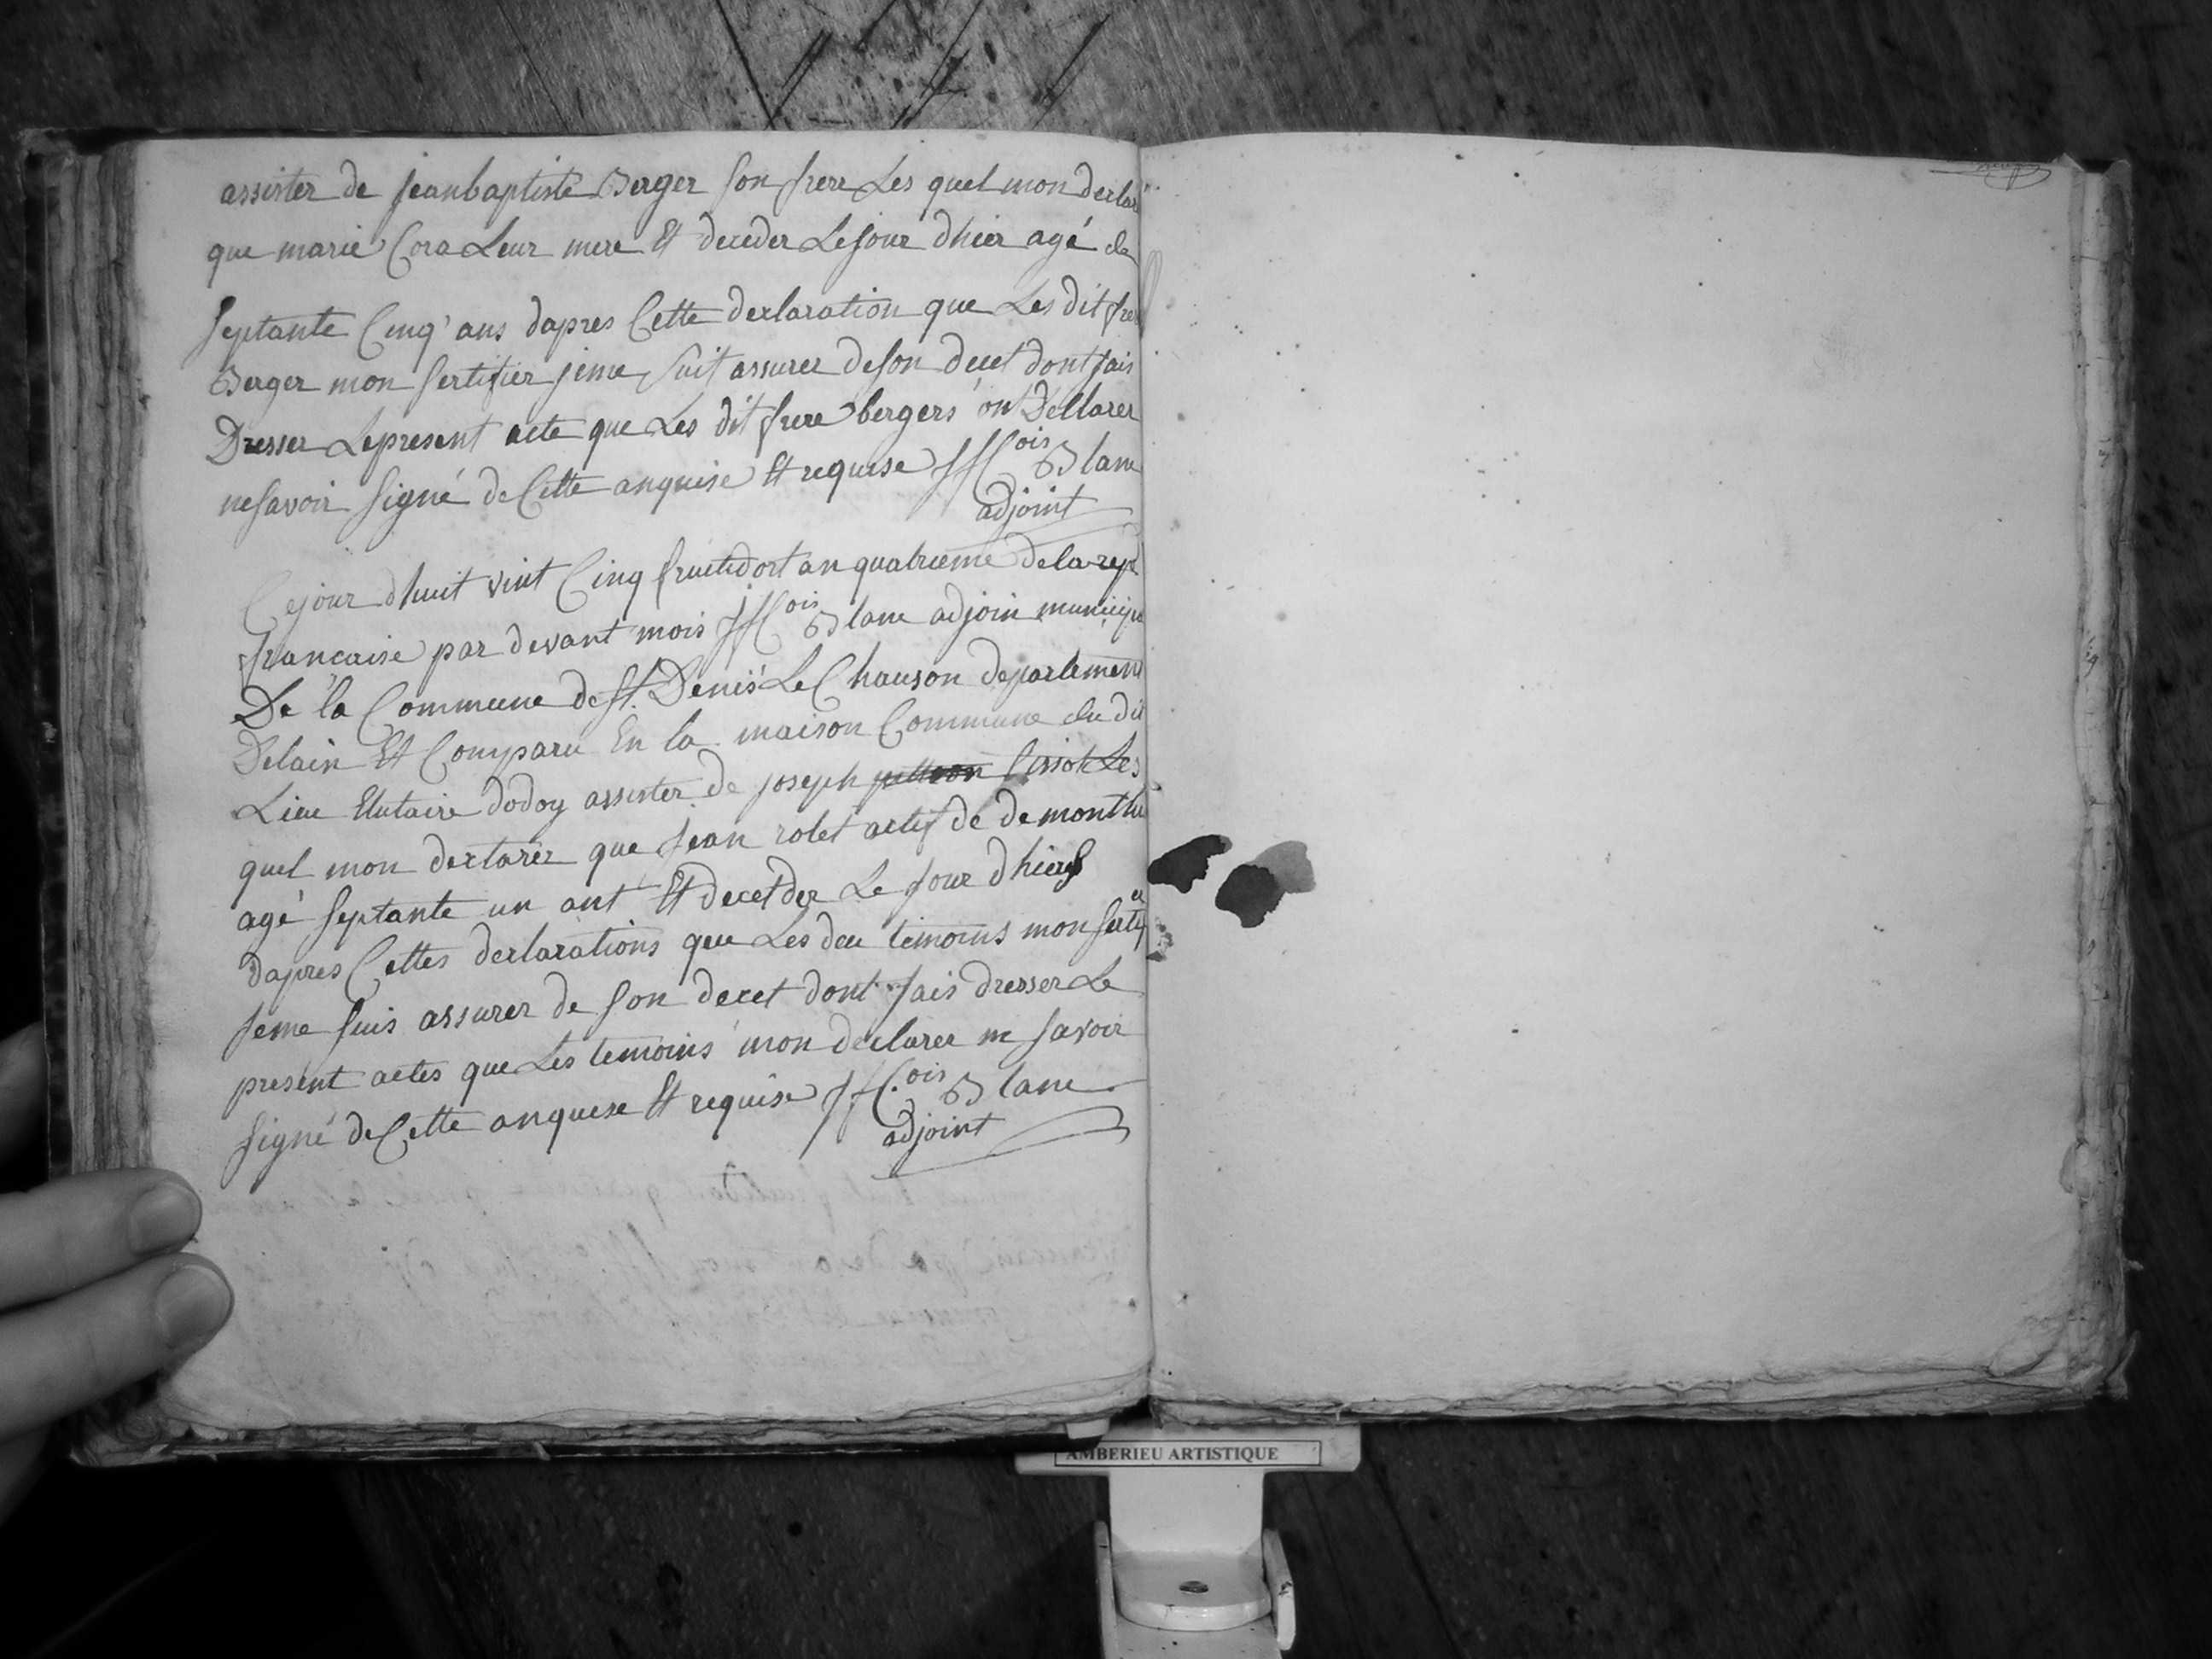 assister de jeanbaptiste Berger son frere Les quel mon declar
que marie Cora Leur mere Et deceder Lejour dhier agé de
septante Cinq ans dapres Cette declaration que Les dit frer
Berger mon sertifier jeme suit assurer deson decet dont jais
Dresser Lepresent acte que Les dit frere bergers on Dellarer
nesavoir signé de Cette anquise Et requise ffCois Blanc
adjoint
Cejour dhuit vint Cinq fructidort an quatrieme dela rep
francaise par devant mois ffCois Blanc adjoin municipa
De la Commune de St. Denis Le Chauson departement
Delain Et Comparu En la maison Commune du dit
Lieu Elutaire dodoy assister de joseph Sirsot Les
quel mon declarer que jean rolet actif de de montlu
agé septante un ant Et decetder Le jour dhiers
dapres Cettes declarations que Les deu temoins mon serti
jeme suis assurer de son decet dont jais dresser Le
present actes que Les temoins mon declarer ne savoir
signé de Cette anquise Et requise ffC.ois Blanc
adjoint
AMBERIEU ARTISTIQUE